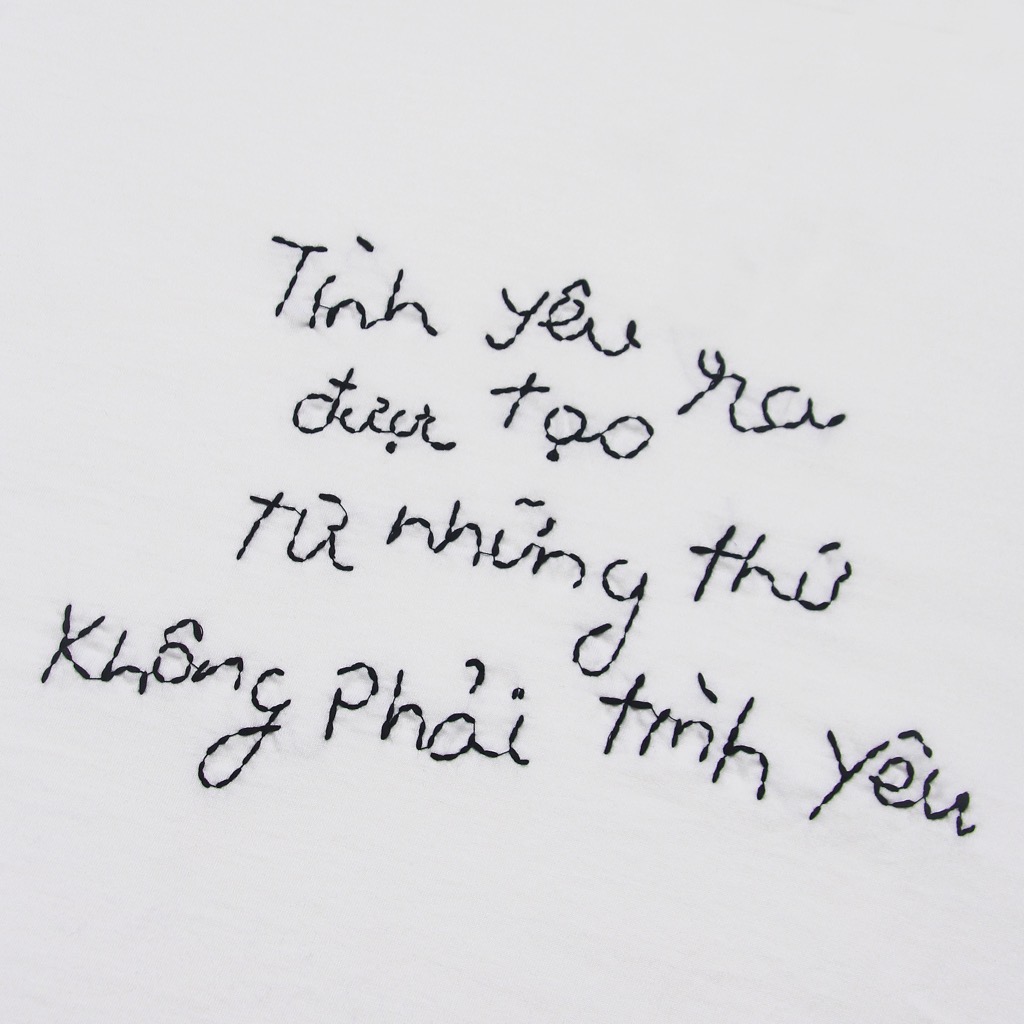 Tình yêu ra
được tạo
từ những thứ
Không Phải tình yêu